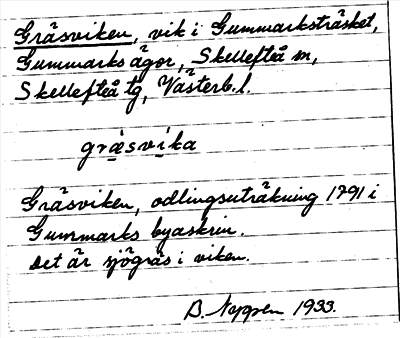 Gräsviken, vik i Gummarksträsket,
Gummarks ägor, Skellefteå sn,
Skellefteå tg, Västerb. l.
gräsvika
Gräsviken, odlingsuträkning 1791 i
Gummarks byaskrin.
Det är sjögräs i viken.
B. 1933.